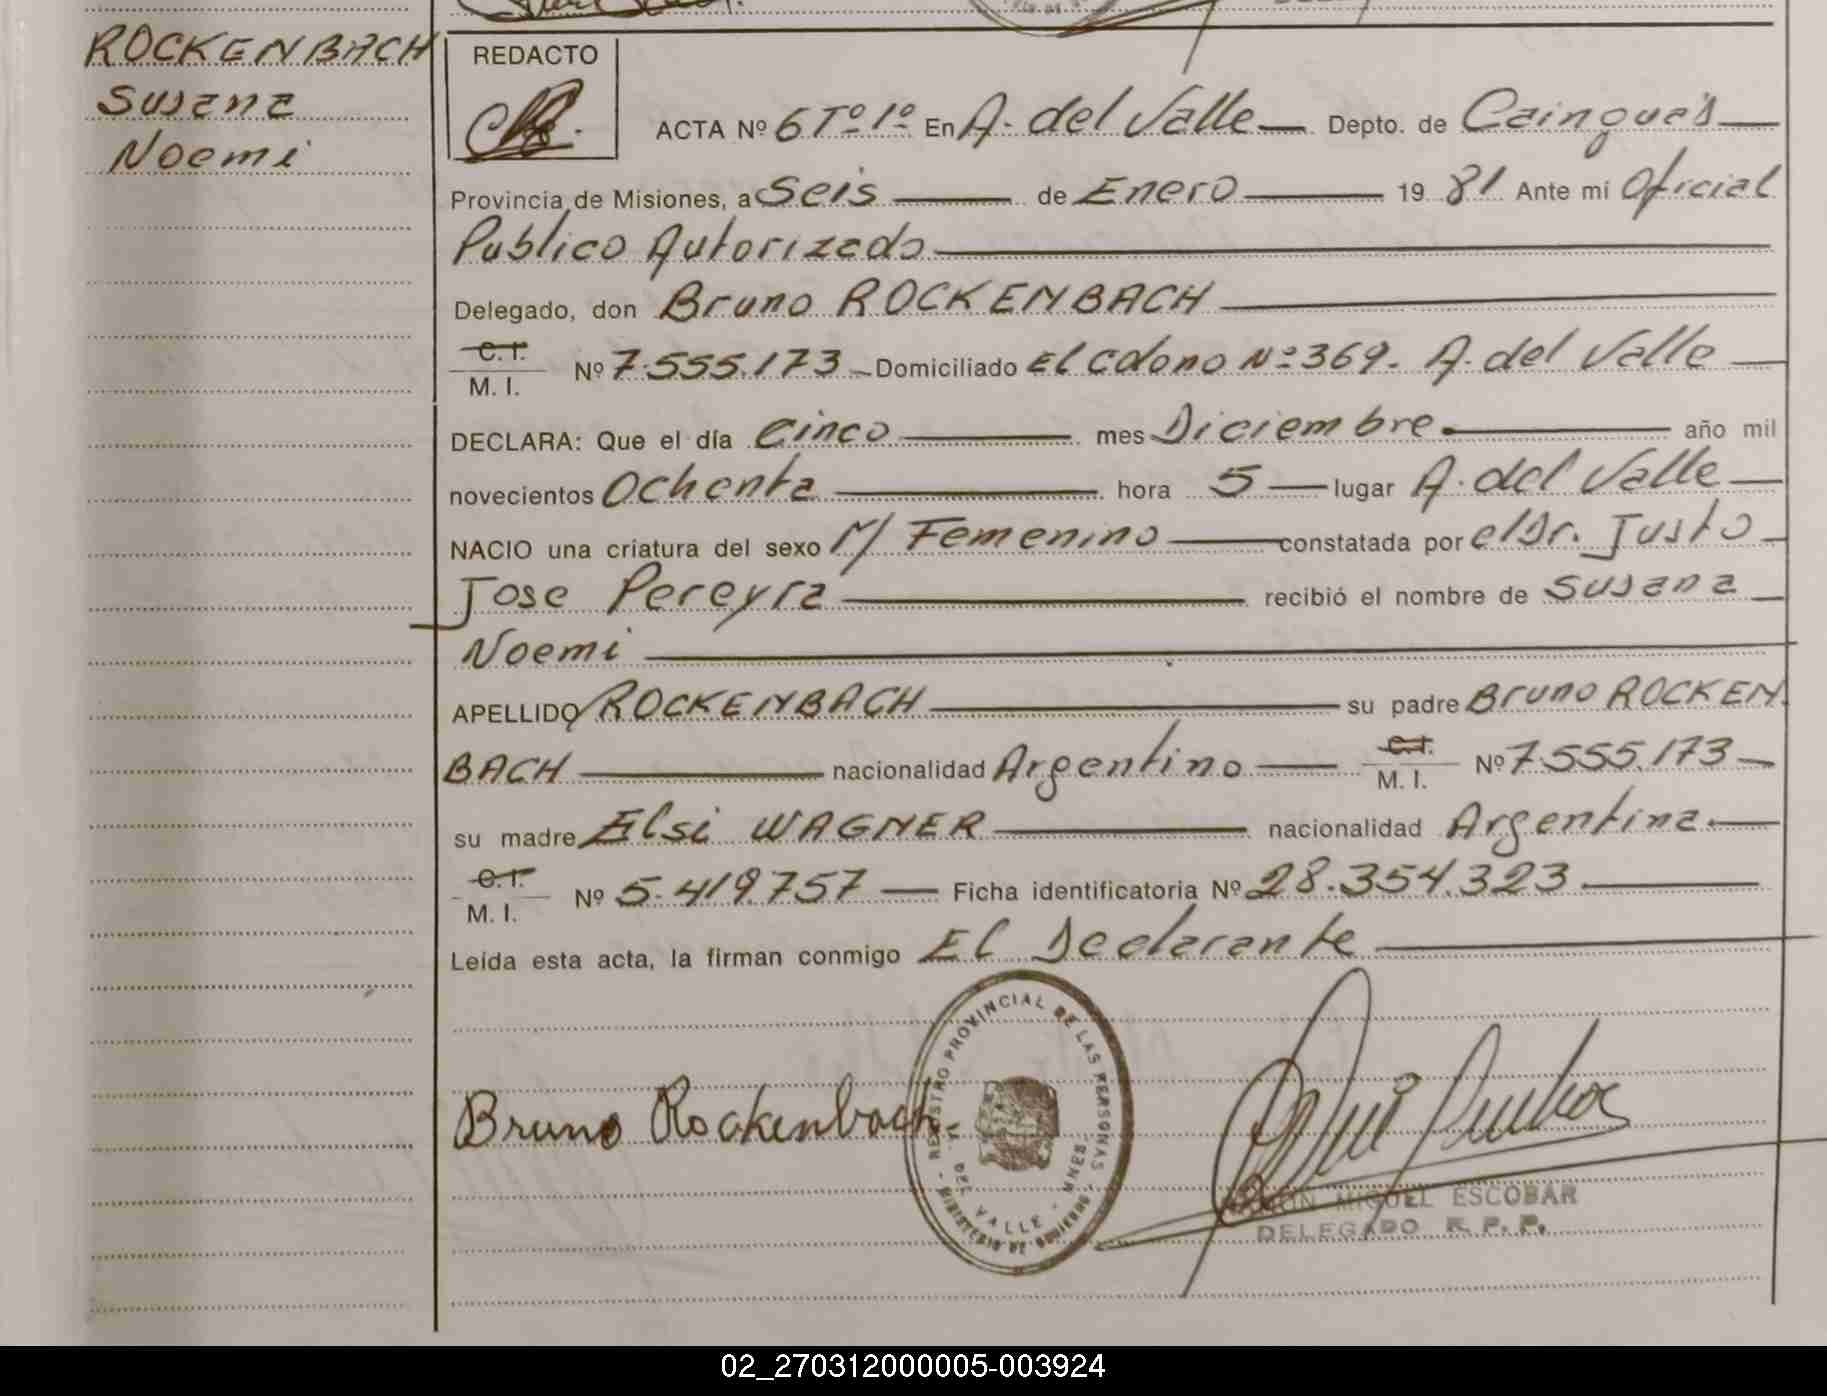 ROCKENBACH
Susana
Noemi
REDACTO
ACTA Nº 6 Tº 1º En A. del Valle Depto. de Cainguas
Provincia de Misiones, a Seis de Enero 19 81 Ante mi Oficial
Publico Autorizado
Delegado, don Bruno ROCKENBACH
C. I.
M. I. Nº 7.555.173 Domiciliado El Colono Nº 369. A. del Valle
DECLARA: Que el día Cinco mes Diciembre año mil
novecientos Ochenta hora 5 lugar A. del Valle
NACIO una criatura del sexo Femenino constatada por el Dr. Justo
Jose Pereyra recibió el nombre de Susana
Noemi
APELLIDO ROCKENBACH su padre Bruno ROCKEN
BACH nacionalidad Argentino C.I. M. I. Nº 7.555.173
su madre Elsi WAGNER nacionalidad Argentina.
C. I.
M. I. Nº 5.419.757 Ficha identificatoria Nº 28.354.323
Leída esta acta, la firman conmigo El Declarante
Bruno Rockenbach
REGISTRO PROVINCIAL DE LAS PERSONAS
DEL VALLE - MNES.
MINISTERIO DE GOBIERNO
MIGUEL ESCOBAR
DELEGADO R. P. P.
02_270312000005-003924